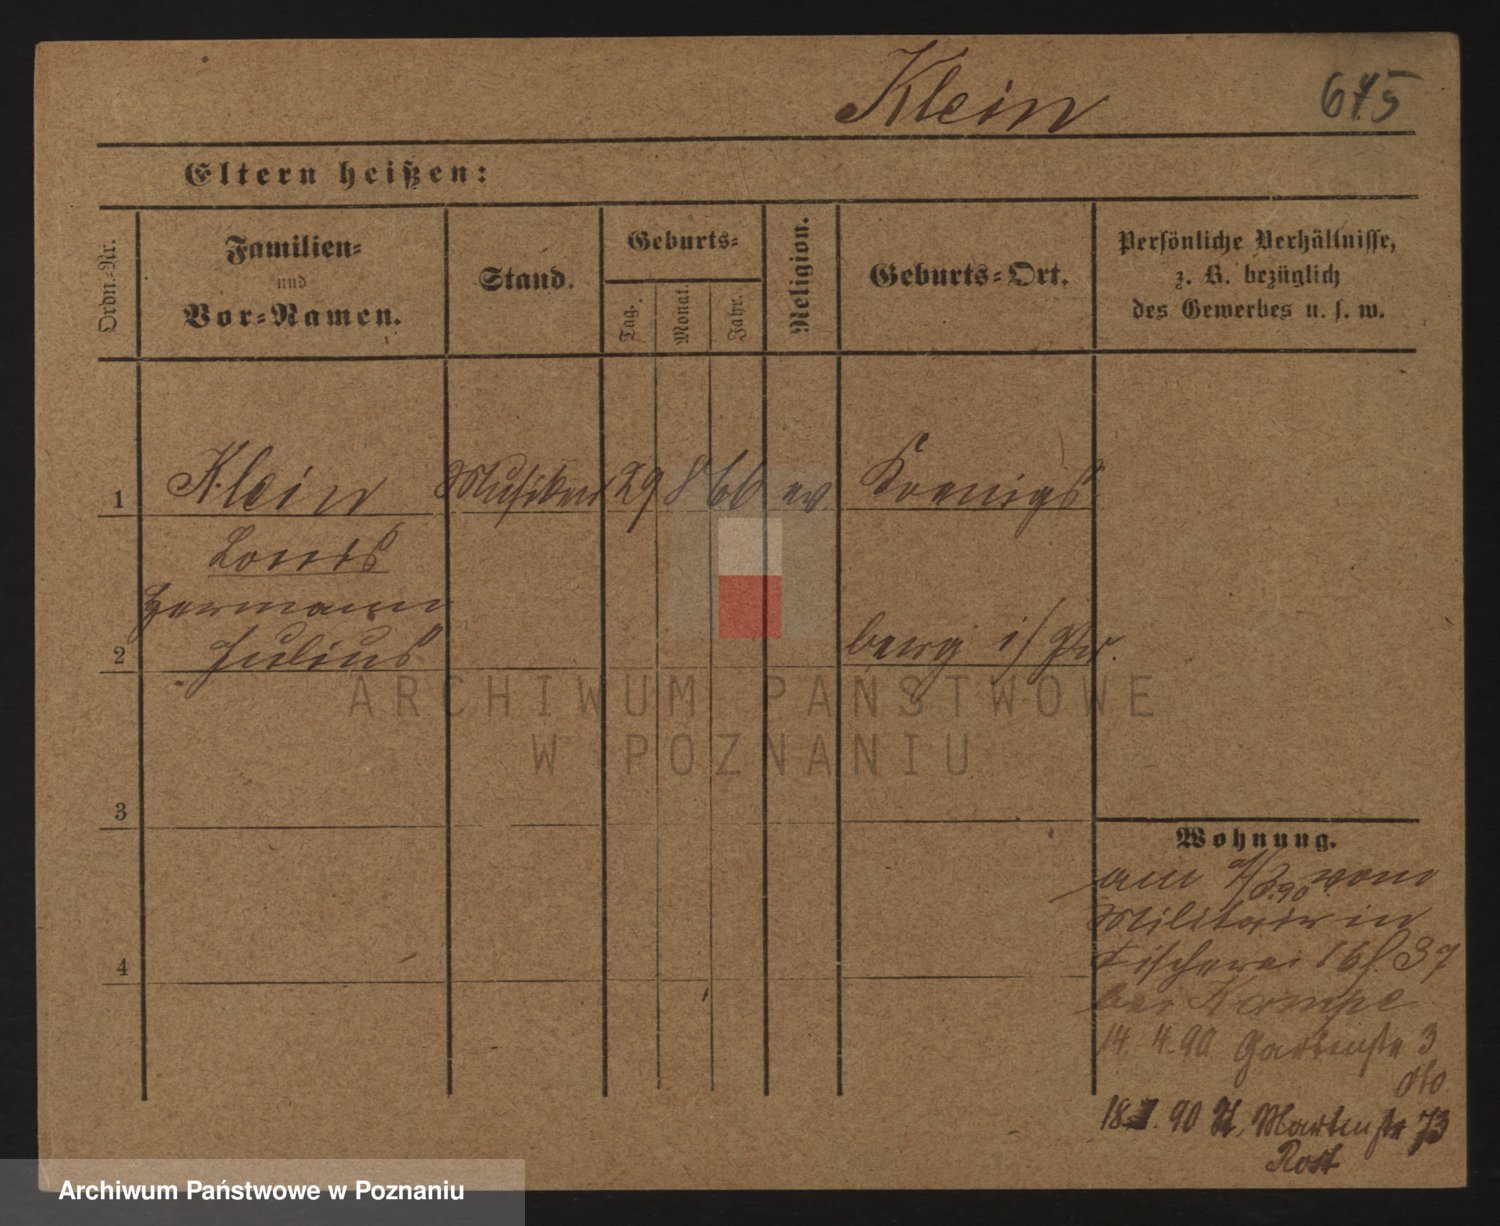 Klein 675
Eltern heißen:
Ordn.-Nr.
Familien-
und
Vor-Namen.
Stand.
Geburts-
Tag.
Monat.
Jahr.
Religion.
Geburts-Ort.
Persönliche Verhältnisse,
z. B. bezüglich
des Gewerbes u. s. w.
1 Klein Musiker 29 8 66 ev. Koenigs
Louis
Hermann
2 Julius berg i/Pr.
3
4
Wohnung.
am 90 vom
Militair in
Fischerei 16 37
bei Kampe
14. 4. 90 Gartenstr 3
dto
18. 90 St. Martinstr 73
Rost
ARCHIWUM PAŃSTWOWE
W POZNANIU
Archiwum Państwowe w Poznaniu